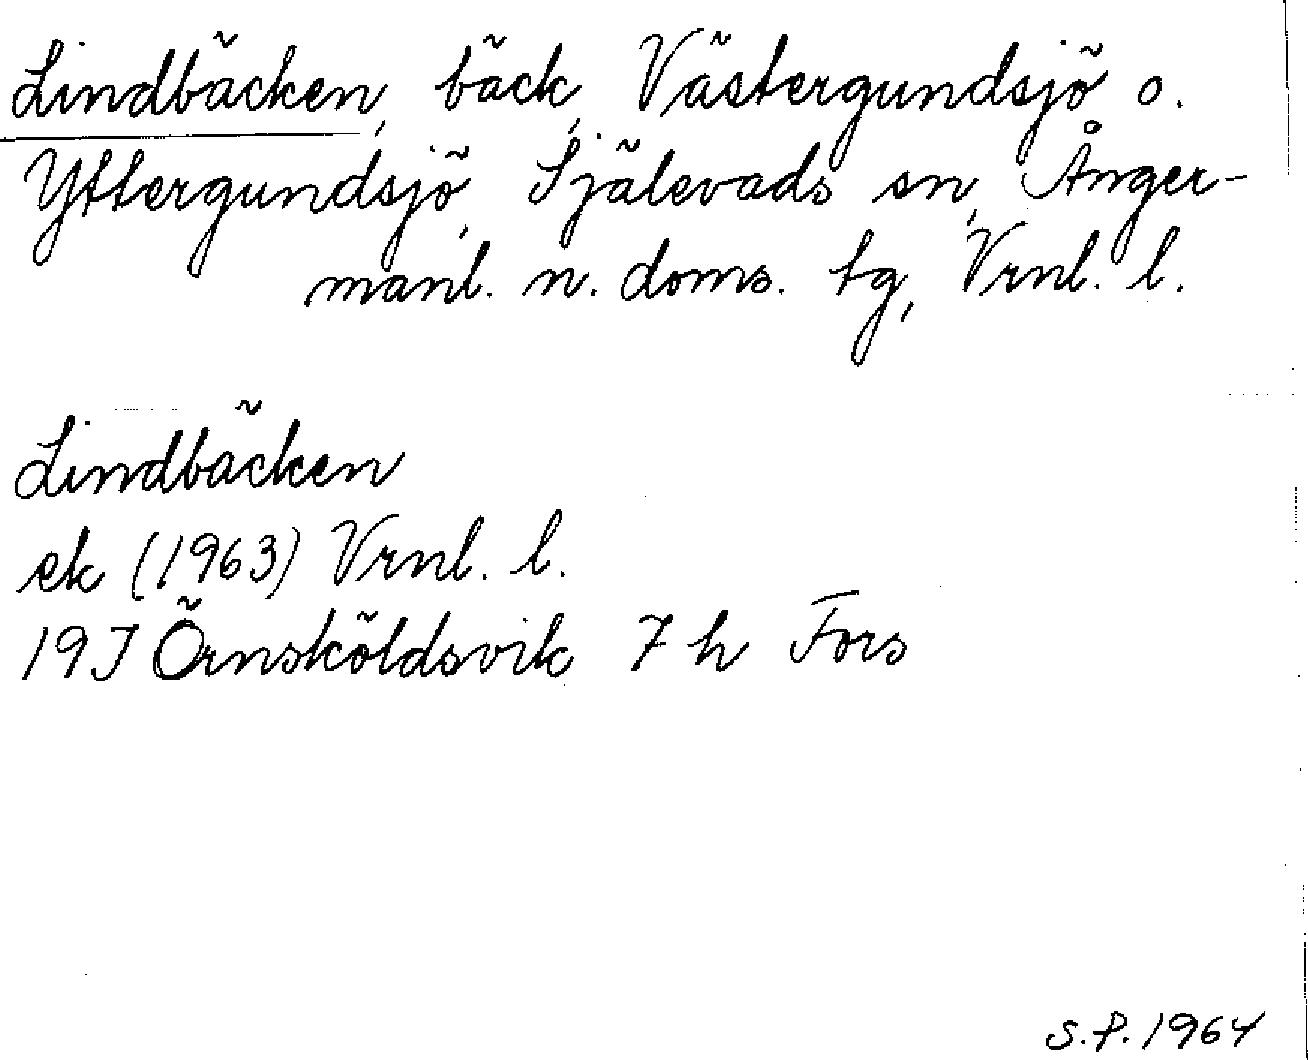 Lindbäcken, bäck, Västergundsjö o.
Yttergundsjö, Själevads sn, Ånger-
manl. n. doms. tg, Vrnl. l.
Lindbäcken
ek (1963) Vrnl. l.
19J Örnsköldsvik 7 h Fors
S.P. 1964